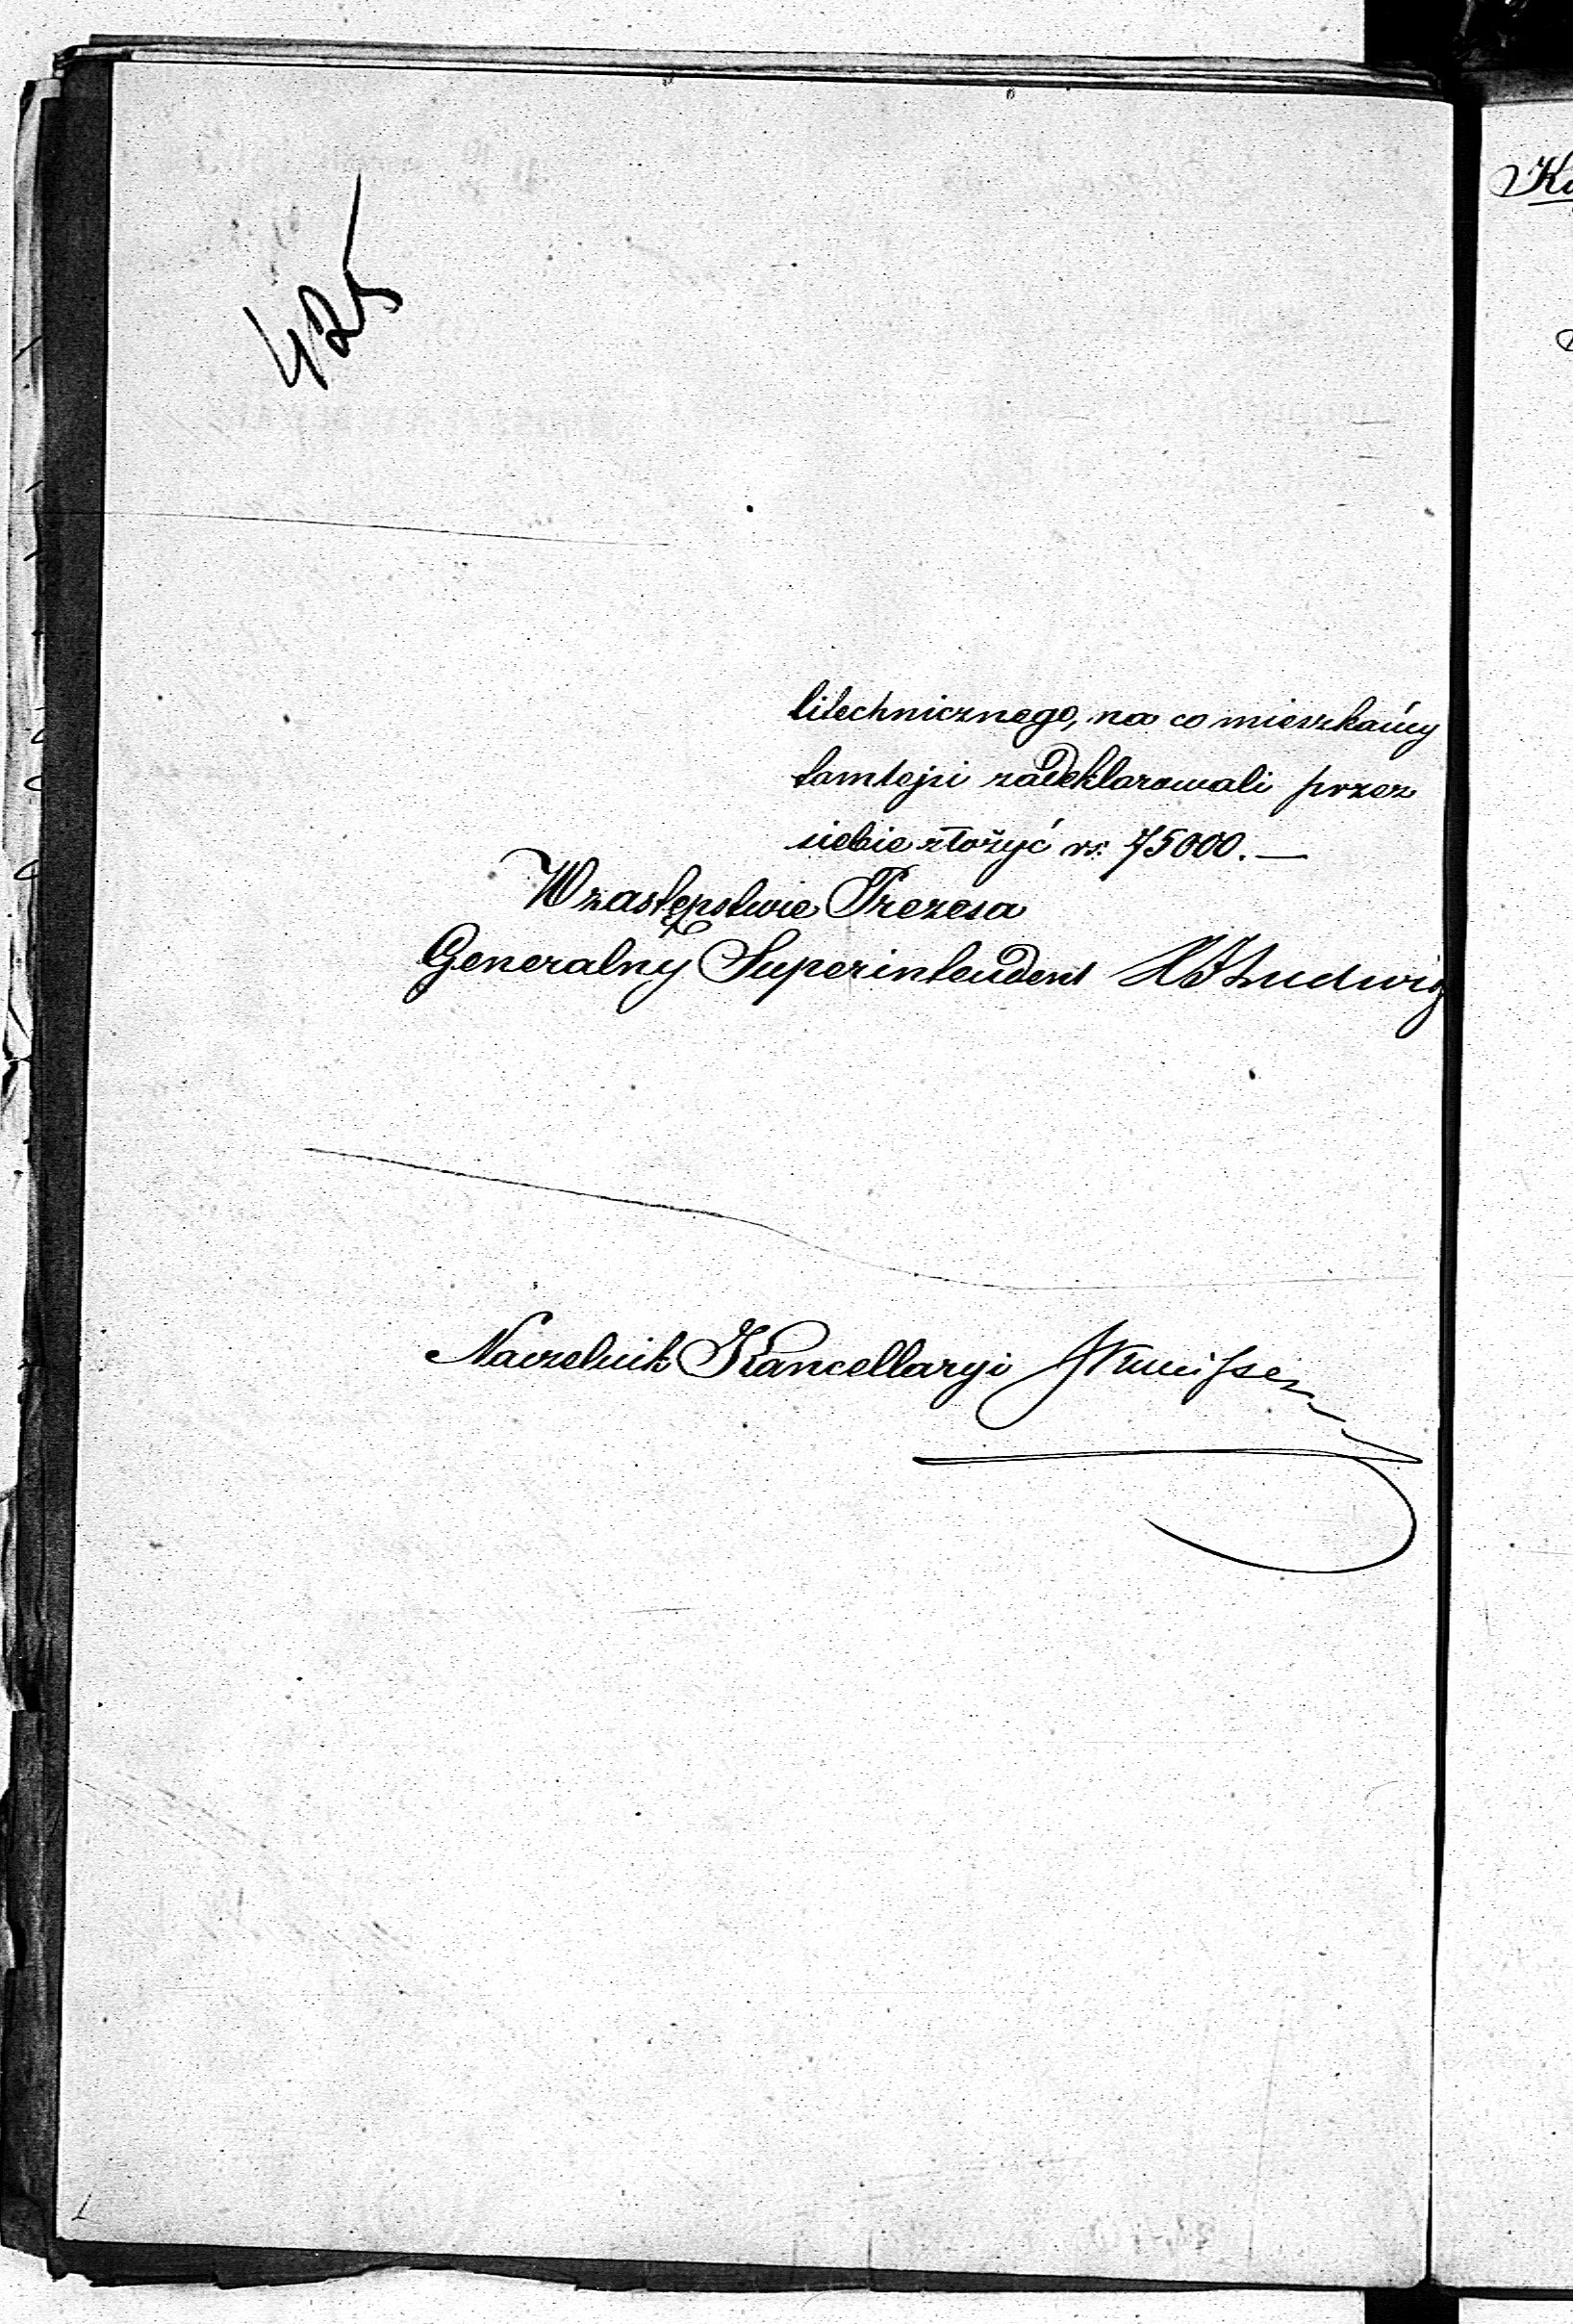 425
litechnicznego, na co mieszkańcy
tamtejsi zadeklarowali przez
siebie złożyć rs. 75000.—
W zastępstwie Prezesa
Generalny Superintendent Ludwig
Naczelnik Kancellaryi